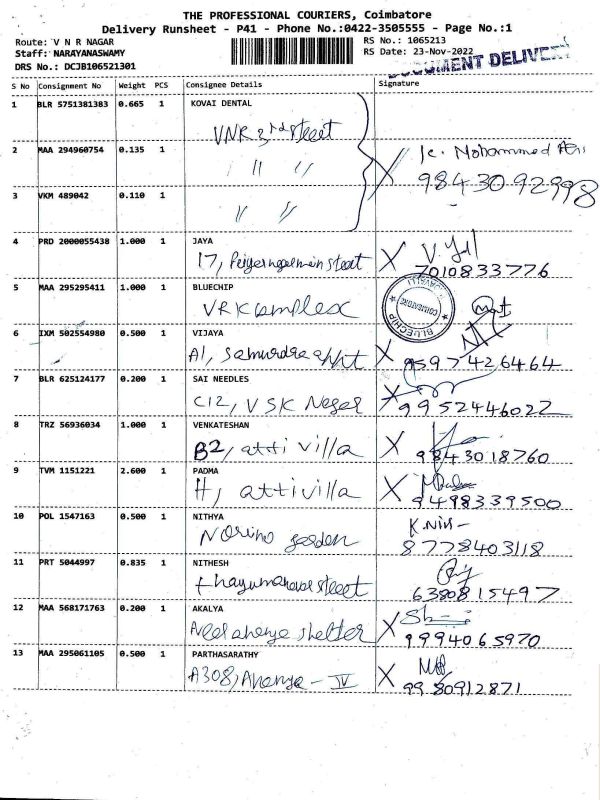 THE PROFESSIONAL COURIERS, Coimbatore
Delivery Runsheet - P41 - Phone No.:0422-3505555 - Page No.:1
Route: V N R NAGAR
RS No.: 1065213
Staff: NARAYANASWAMY
RS Date: 23-Nov-2022
DRS No.: DCJB106521301
DOCUMENT DELIVERY
S No Consignment No Weight PCS Consignee Details Signature
1 BLR 5751381383 0.665 1 KOVAI DENTAL
VNR 3rd street
2 MAA 294960754 0.135 1
" "
K. Mohammed
9843092998
3 VKM 489042 0.110 1
" "
4 PRD 2000055438 1.000 1 JAYA
17, street
X 7010833776
5 MAA 295295411 1.000 1 BLUECHIP
VRK Complex
BLUECHIP COIMBATORE
6 IXM 502554980 0.500 1 VIJAYA
A1, Samurdra appt
X 9597426464
7 BLR 625124177 0.200 1 SAI NEEDLES
C12, VSK Nager
X 9952446022
8 TRZ 56936034 1.000 1 VENKATESHAN
B2, atti villa
X 9843018760
9 TVM 1151221 2.600 1 PADMA
H, atti villa
X 9498339500
10 POL 1547163 0.500 1 NITHYA
Norino garden
8778403118
11 PRT 5044997 0.835 1 NITHESH
street
6380815497
12 MAA 568171763 0.200 1 AKALYA
shelter
X 9994065970
13 MAA 295061105 0.500 1 PARTHASARATHY
A308, Ananya - IV
X 9980912871